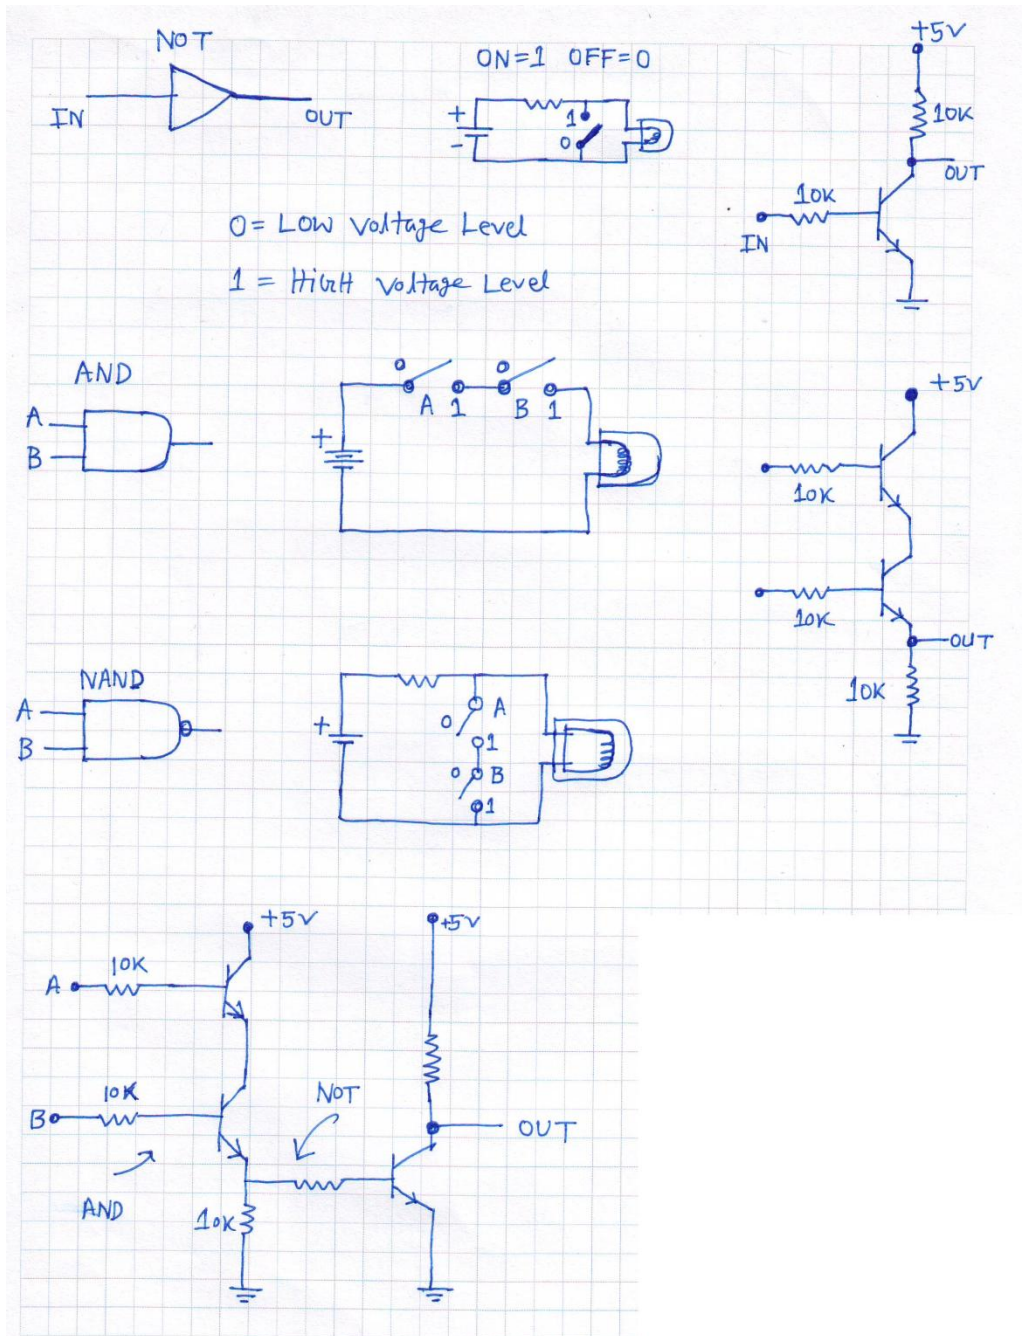 NOT
IN
OUT
ON=1 OFF=0
+
-
1
0
+5V
10K
OUT
10K
IN
0 = LOW Voltage Level
1 = HIGH Voltage Level
AND
A
B
0
0
A 1 B 1
+
+5V
10K
10K
OUT
10K
NAND
A
B
+
A
0
1
0 B
1
+5V
+5V
A
10K
B
10K
NOT
OUT
AND
10K